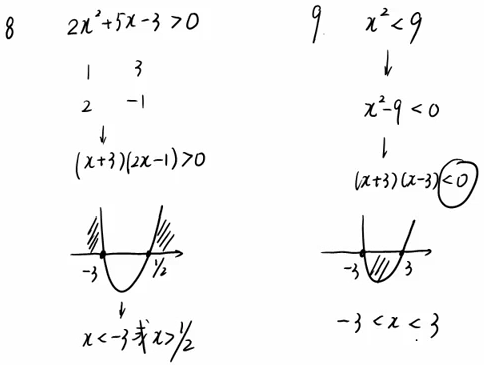 8 2x²+5x-3>0
1 3
2 -1
↓
(x+3)(2x-1)>0
-3 1/2
↓
x<-3或x>1/2
9. x²<9
↓
x²-9<0
↓
(x+3)(x-3)<0
-3 3
-3<x<3